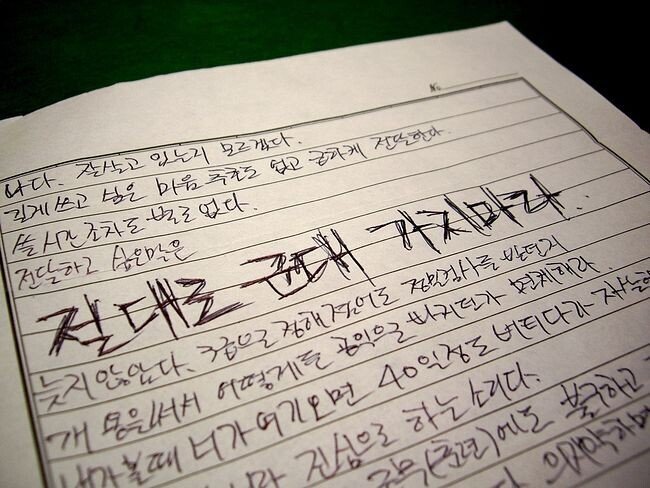 No
나다. 잘살고 있는지 모르겠다.
길게 쓰고 싶은 마음 추호도 없고 급하게 전달한다.
쓸 시간 조차도 별로 없다.
전달하고 싶은말은
절대로 군대 가지마라.
늦지 않았다. 3급으로 정해졌어도 정밀검사를 받던지
개 용을써서 어떻게든 공익으로 빠지던가 면제해라
내가볼때 너가 여기오면 40일정도 버티다가
진심으로 하는 소리다.
에도 불구하고